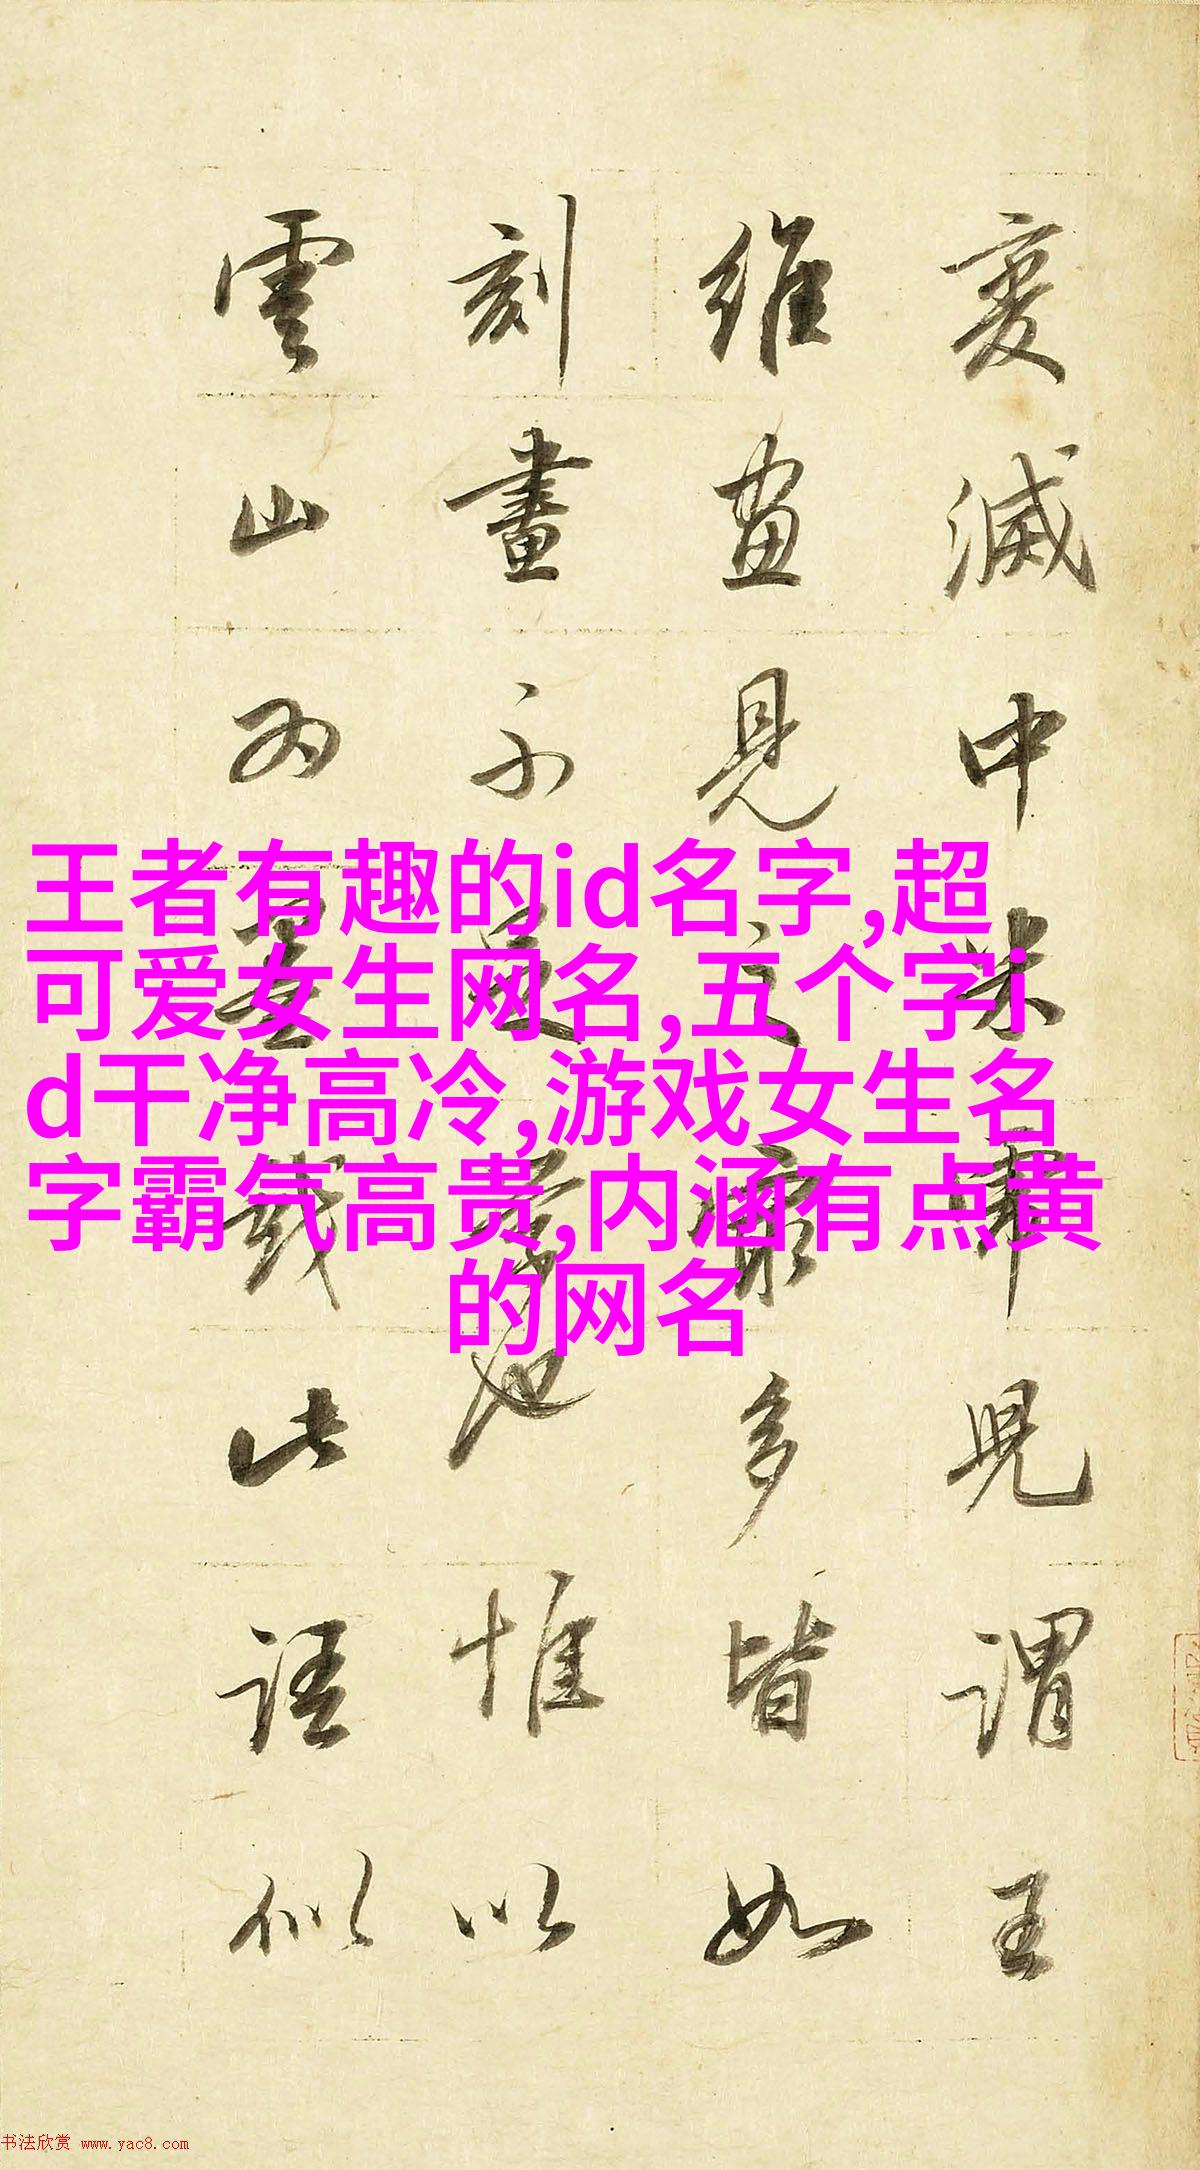 變滅中米謂王
維畫見之最多皆如
刻畫不足學也惟以
雲山為墨戲此語似
王者有趣的id名字,超
可爱女生网名,五个字i
d干净高冷,游戏女生名
字霸气高贵,内涵有点黄
的网名
书法欣赏 www.yac8.com